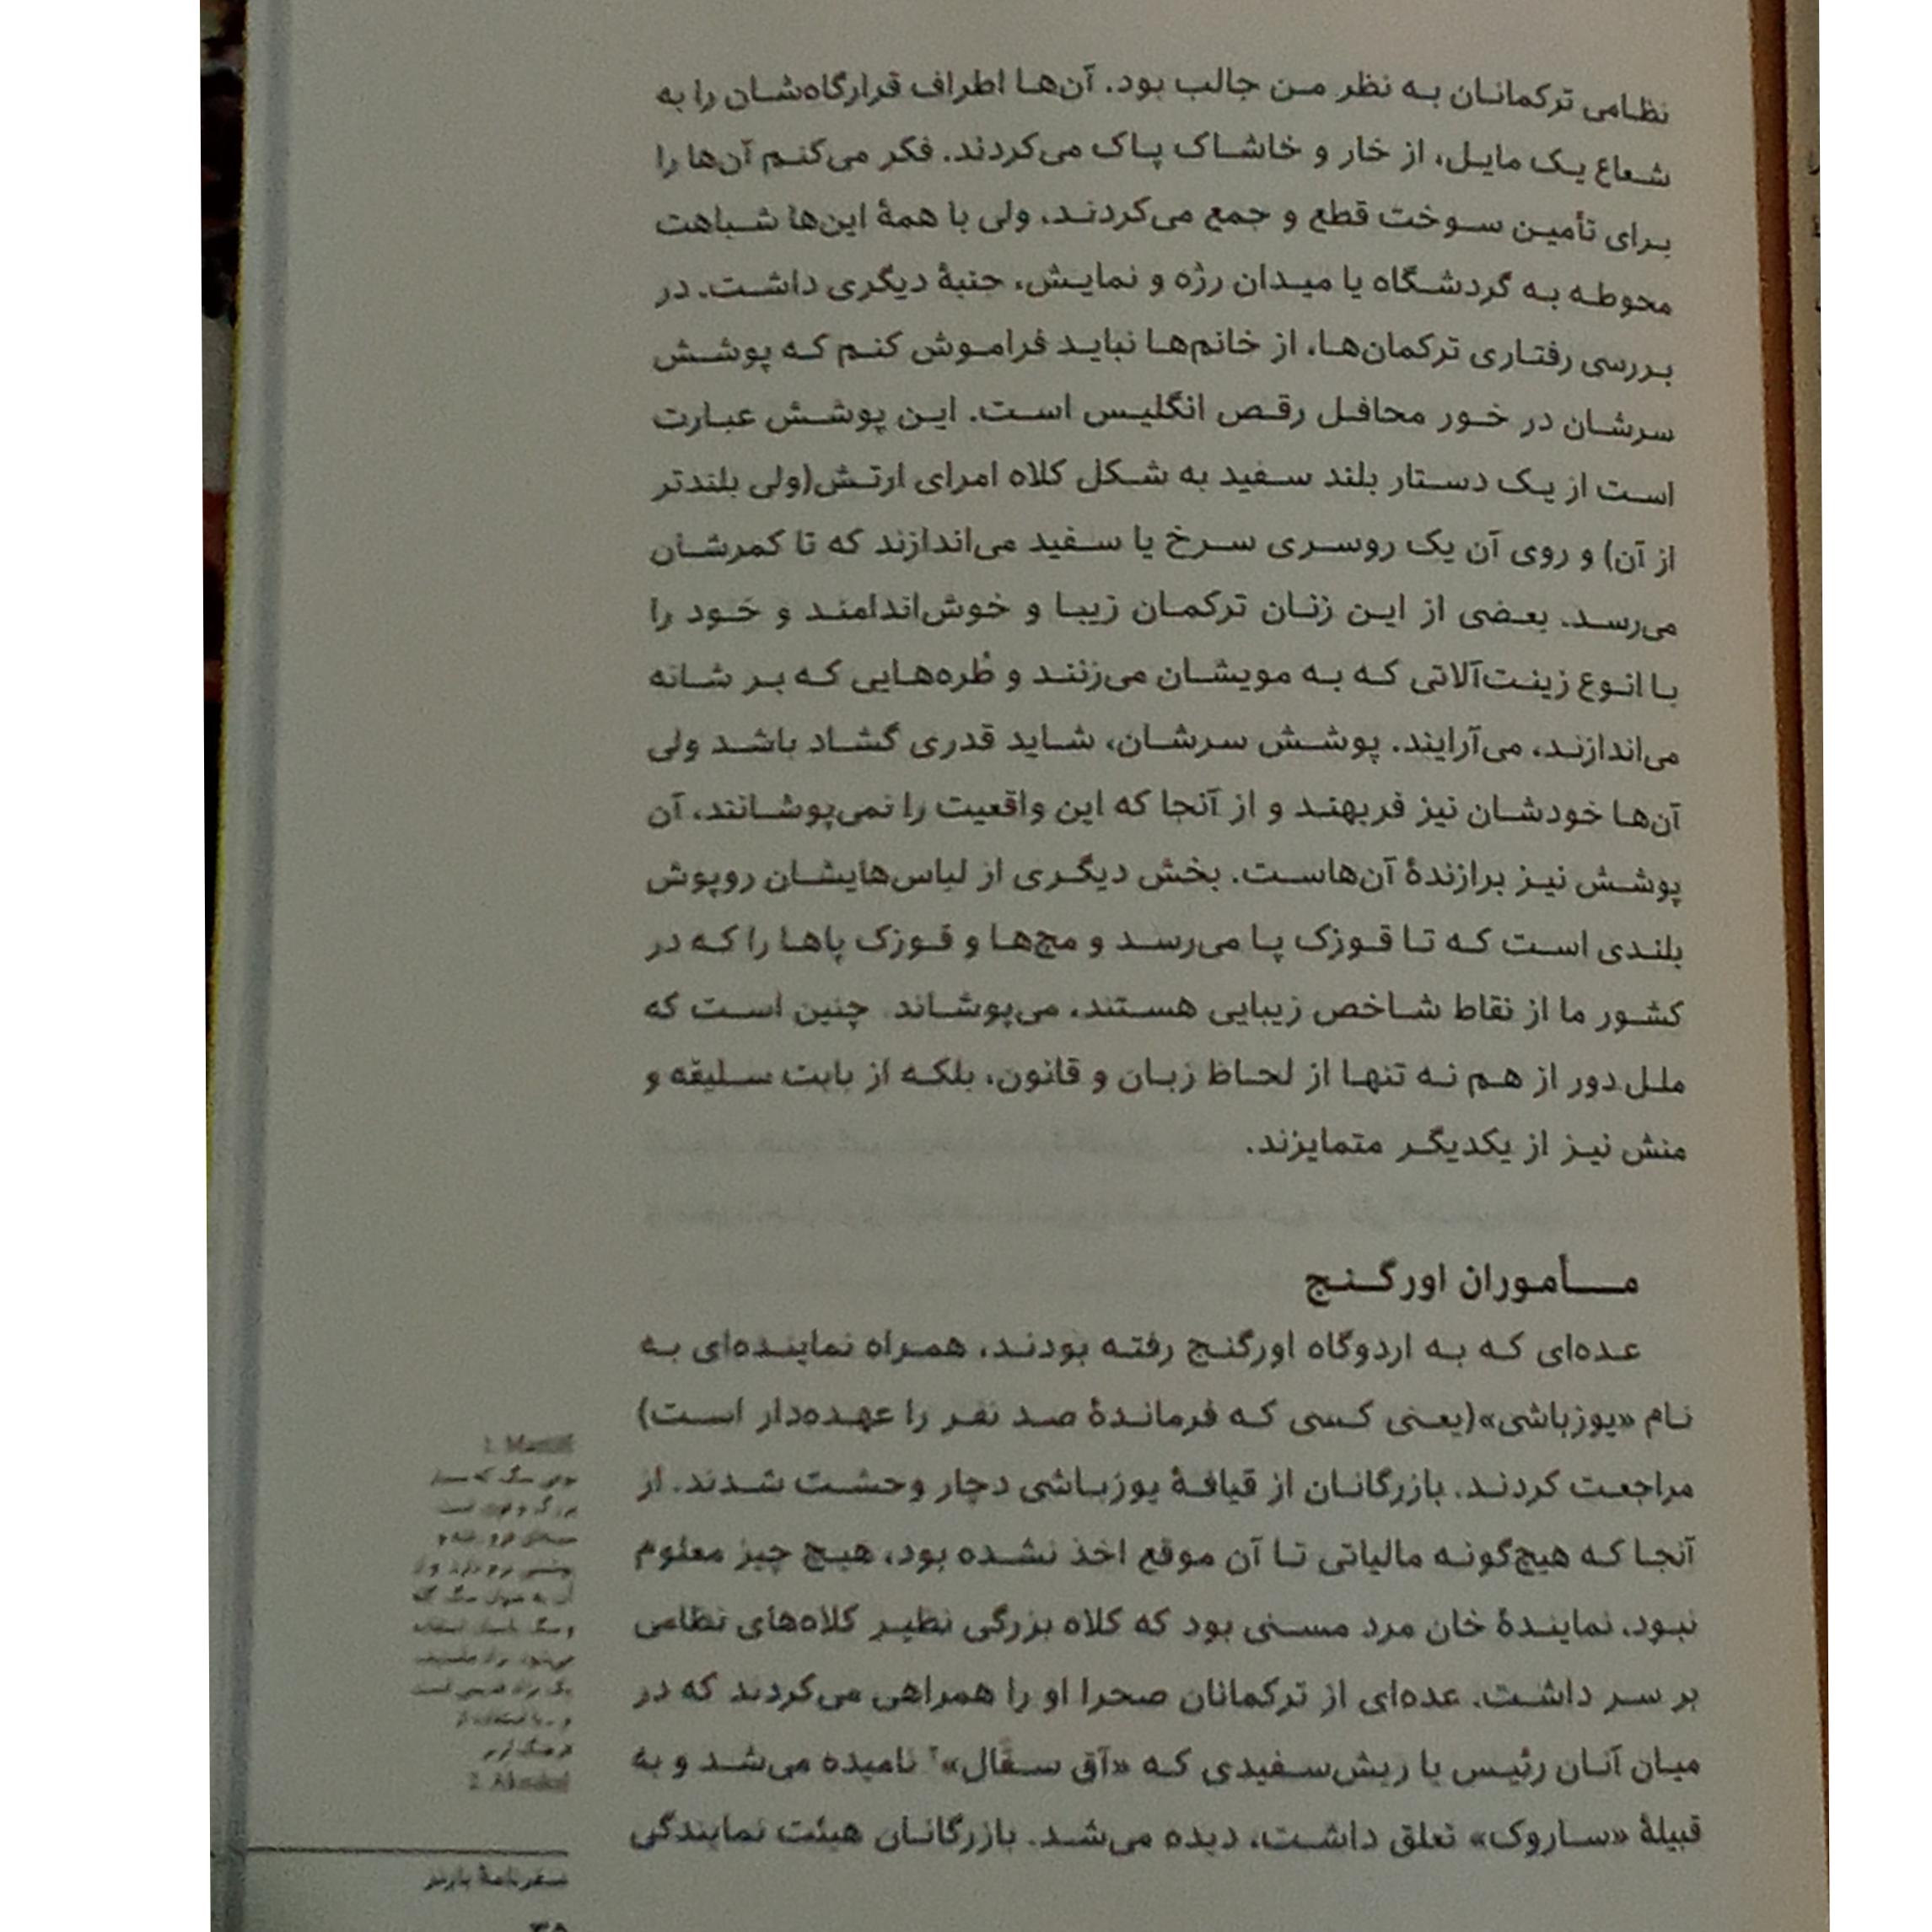 نظامی ترکمانان به نظر من جالب بود. آن‌ها اطراف قرارگاه‌شان را به
شعاع یک مایل، از خار و خاشاک پاک می‌کردند. فکر می‌کنم آن‌ها را
برای تأمین سوخت قطع و جمع می‌کردند، ولی با همهٔ این‌ها شباهت
محوطه به گردشگاه یا میدان رژه و نمایش، جنبهٔ دیگری داشت. در
بررسی رفتاری ترکمان‌ها، از خانم‌ها نباید فراموش کنم که پوشش
سرشان در خور محافل رقص انگلیس است. این پوشش عبارت
است از یک دستار بلند سفید به شکل کلاه امرای ارتش(ولی بلندتر
از آن) و روی آن یک روسری سرخ یا سفید می‌اندازند که تا کمرشان
می‌رسد. بعضی از این زنان ترکمان زیبا و خوش‌اندامند و خود را
با انوع زینت‌آلاتی که به مویشان می‌زنند و طُره‌هایی که بر شانه
می‌اندازند، می‌آرایند. پوشش سرشان، شاید قدری گشاد باشد ولی
آن‌ها خودشان نیز فربهند و از آنجا که این واقعیت را نمی‌پوشانند، آن
پوشش نیز برازندهٔ آن‌هاست. بخش دیگری از لباس‌هایشان روپوش
بلندی است که تا قوزک پا می‌رسد و مچ‌ها و قوزک پاها را که در
کشور ما از نقاط شاخص زیبایی هستند، می‌پوشاند. چنین است که
ملل دور از هم نه تنها از لحاظ زبان و قانون، بلکه از بابت سلیقه و
منش نیز از یکدیگر متمایزند.
مأموران اورگنج
عده‌ای که به اردوگاه اورگنج رفته بودند، همراه نماینده‌ای به
نام «یوزباشی»(یعنی کسی که فرماندهٔ صد نفر را عهده‌دار است)
مراجعت کردند. بازرگانان از قیافهٔ یوزباشی دچار وحشت شدند. از
آنجا که هیچ‌گونه مالیاتی تا آن موقع اخذ نشده بود، هیچ چیز معلوم
نبود. نمایندهٔ خان مرد مسنی بود که کلاه بزرگی نظیر کلاه‌های نظامی
بر سر داشت. عده‌ای از ترکمانان صحرا او را همراهی می‌کردند که در
میان آنان رئیس یا ریش‌سفیدی که «آق سقال»۲ نامیده می‌شد و به
قبیلهٔ «ساروک» تعلق داشت، دیده می‌شد. بازرگانان هیئت نمایندگی
1. Mastiff
نوعی سگ که بسیار
بزرگ و قوی است
2. Aksakal
سفرنامهٔ بارنز